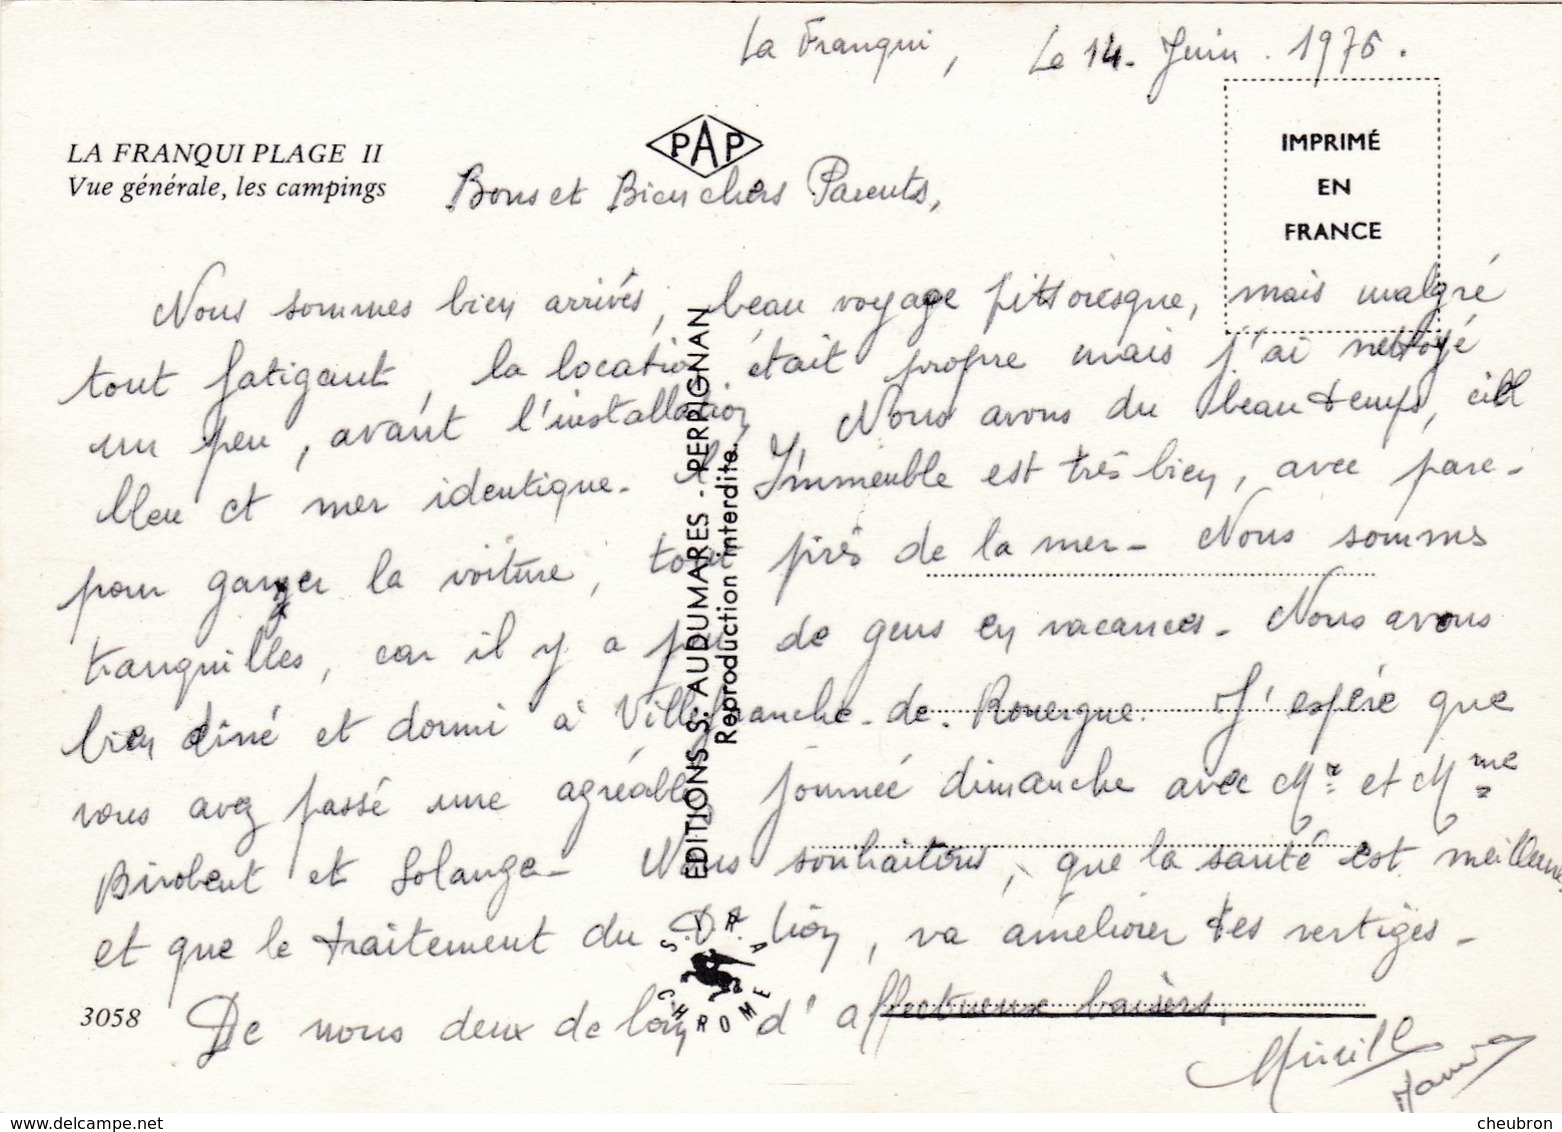 La Franqui, Le 14. Juin. 1976.
PAP
LA FRANQUI PLAGE II
Vue générale, les campings
IMPRIMÉ
EN
FRANCE
Bons et Bien chers Parents,
Nous sommes bien arrivés, beau voyage pittoresque, mais malgré
tout fatigant, la location était propre mais j'ai nettoyé
un peu, avant l'installation. Nous avons du beau temps, ciel
bleu et mer identique. L'Immeuble est très bien, avec pare-
pour garger la voiture, tout près de la mer - Nous sommes
tranquilles, car il y a peu de gens en vacances - Nous avons
bien dîné et dormi à Villefranche-de-Rouergue. J'espère que
vous avez passé une agréable journée dimanche avec Mr et Mme
Birobent et Solange - Nous souhaitons, que la santé est meilleure
et que le traitement du D.R. Lion, va améliorer tes vertiges -
De nous deux de loin d'affectueux baisers.
Mireille
EDITIONS S. AUDUMARES - PERPIGNAN
Reproduction interdite.
S.I.R.A
CHROME
3058
cheubron